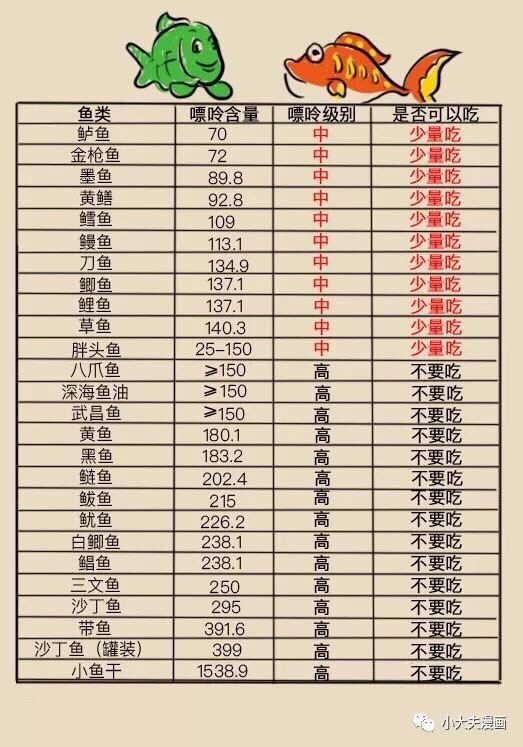 鱼类 嘌呤含量 嘌呤级别 是否可以吃
鲈鱼 70 中 少量吃
金枪鱼 72 中 少量吃
墨鱼 89.8 中 少量吃
黄鳝 92.8 中 少量吃
鳕鱼 109 中 少量吃
鳗鱼 113.1 中 少量吃
刀鱼 134.9 中 少量吃
鲫鱼 137.1 中 少量吃
鲤鱼 137.1 中 少量吃
草鱼 140.3 中 少量吃
胖头鱼 25-150 中 少量吃
八爪鱼 ≥150 高 不要吃
深海鱼油 ≥150 高 不要吃
武昌鱼 ≥150 高 不要吃
黄鱼 180.1 高 不要吃
黑鱼 183.2 高 不要吃
鲢鱼 202.4 高 不要吃
鲅鱼 215 高 不要吃
鱿鱼 226.2 高 不要吃
白鲫鱼 238.1 高 不要吃
鲳鱼 238.1 高 不要吃
三文鱼 250 高 不要吃
沙丁鱼 295 高 不要吃
带鱼 391.6 高 不要吃
沙丁鱼（罐装） 399 高 不要吃
小鱼干 1538.9 高 不要吃
小大夫漫画